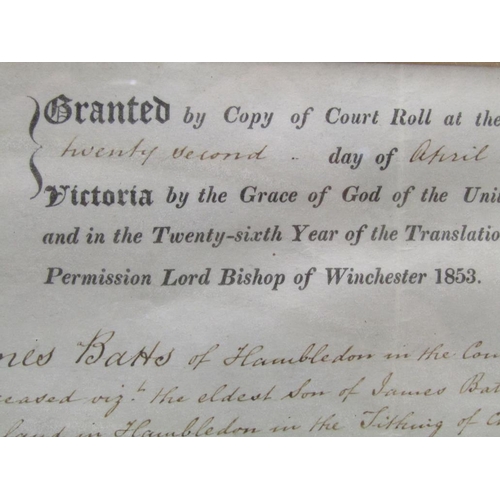 Granted by Copy of Court Roll at the
twenty second .. day of April
Victoria by the Grace of God of the Unit
and in the Twenty-sixth Year of the Translatio
Permission Lord Bishop of Winchester 1853.
mes Batts of Hambledon in the Cou
ceased vizt. the eldest Son of James Bat
land in Hambledon in the Tithing of